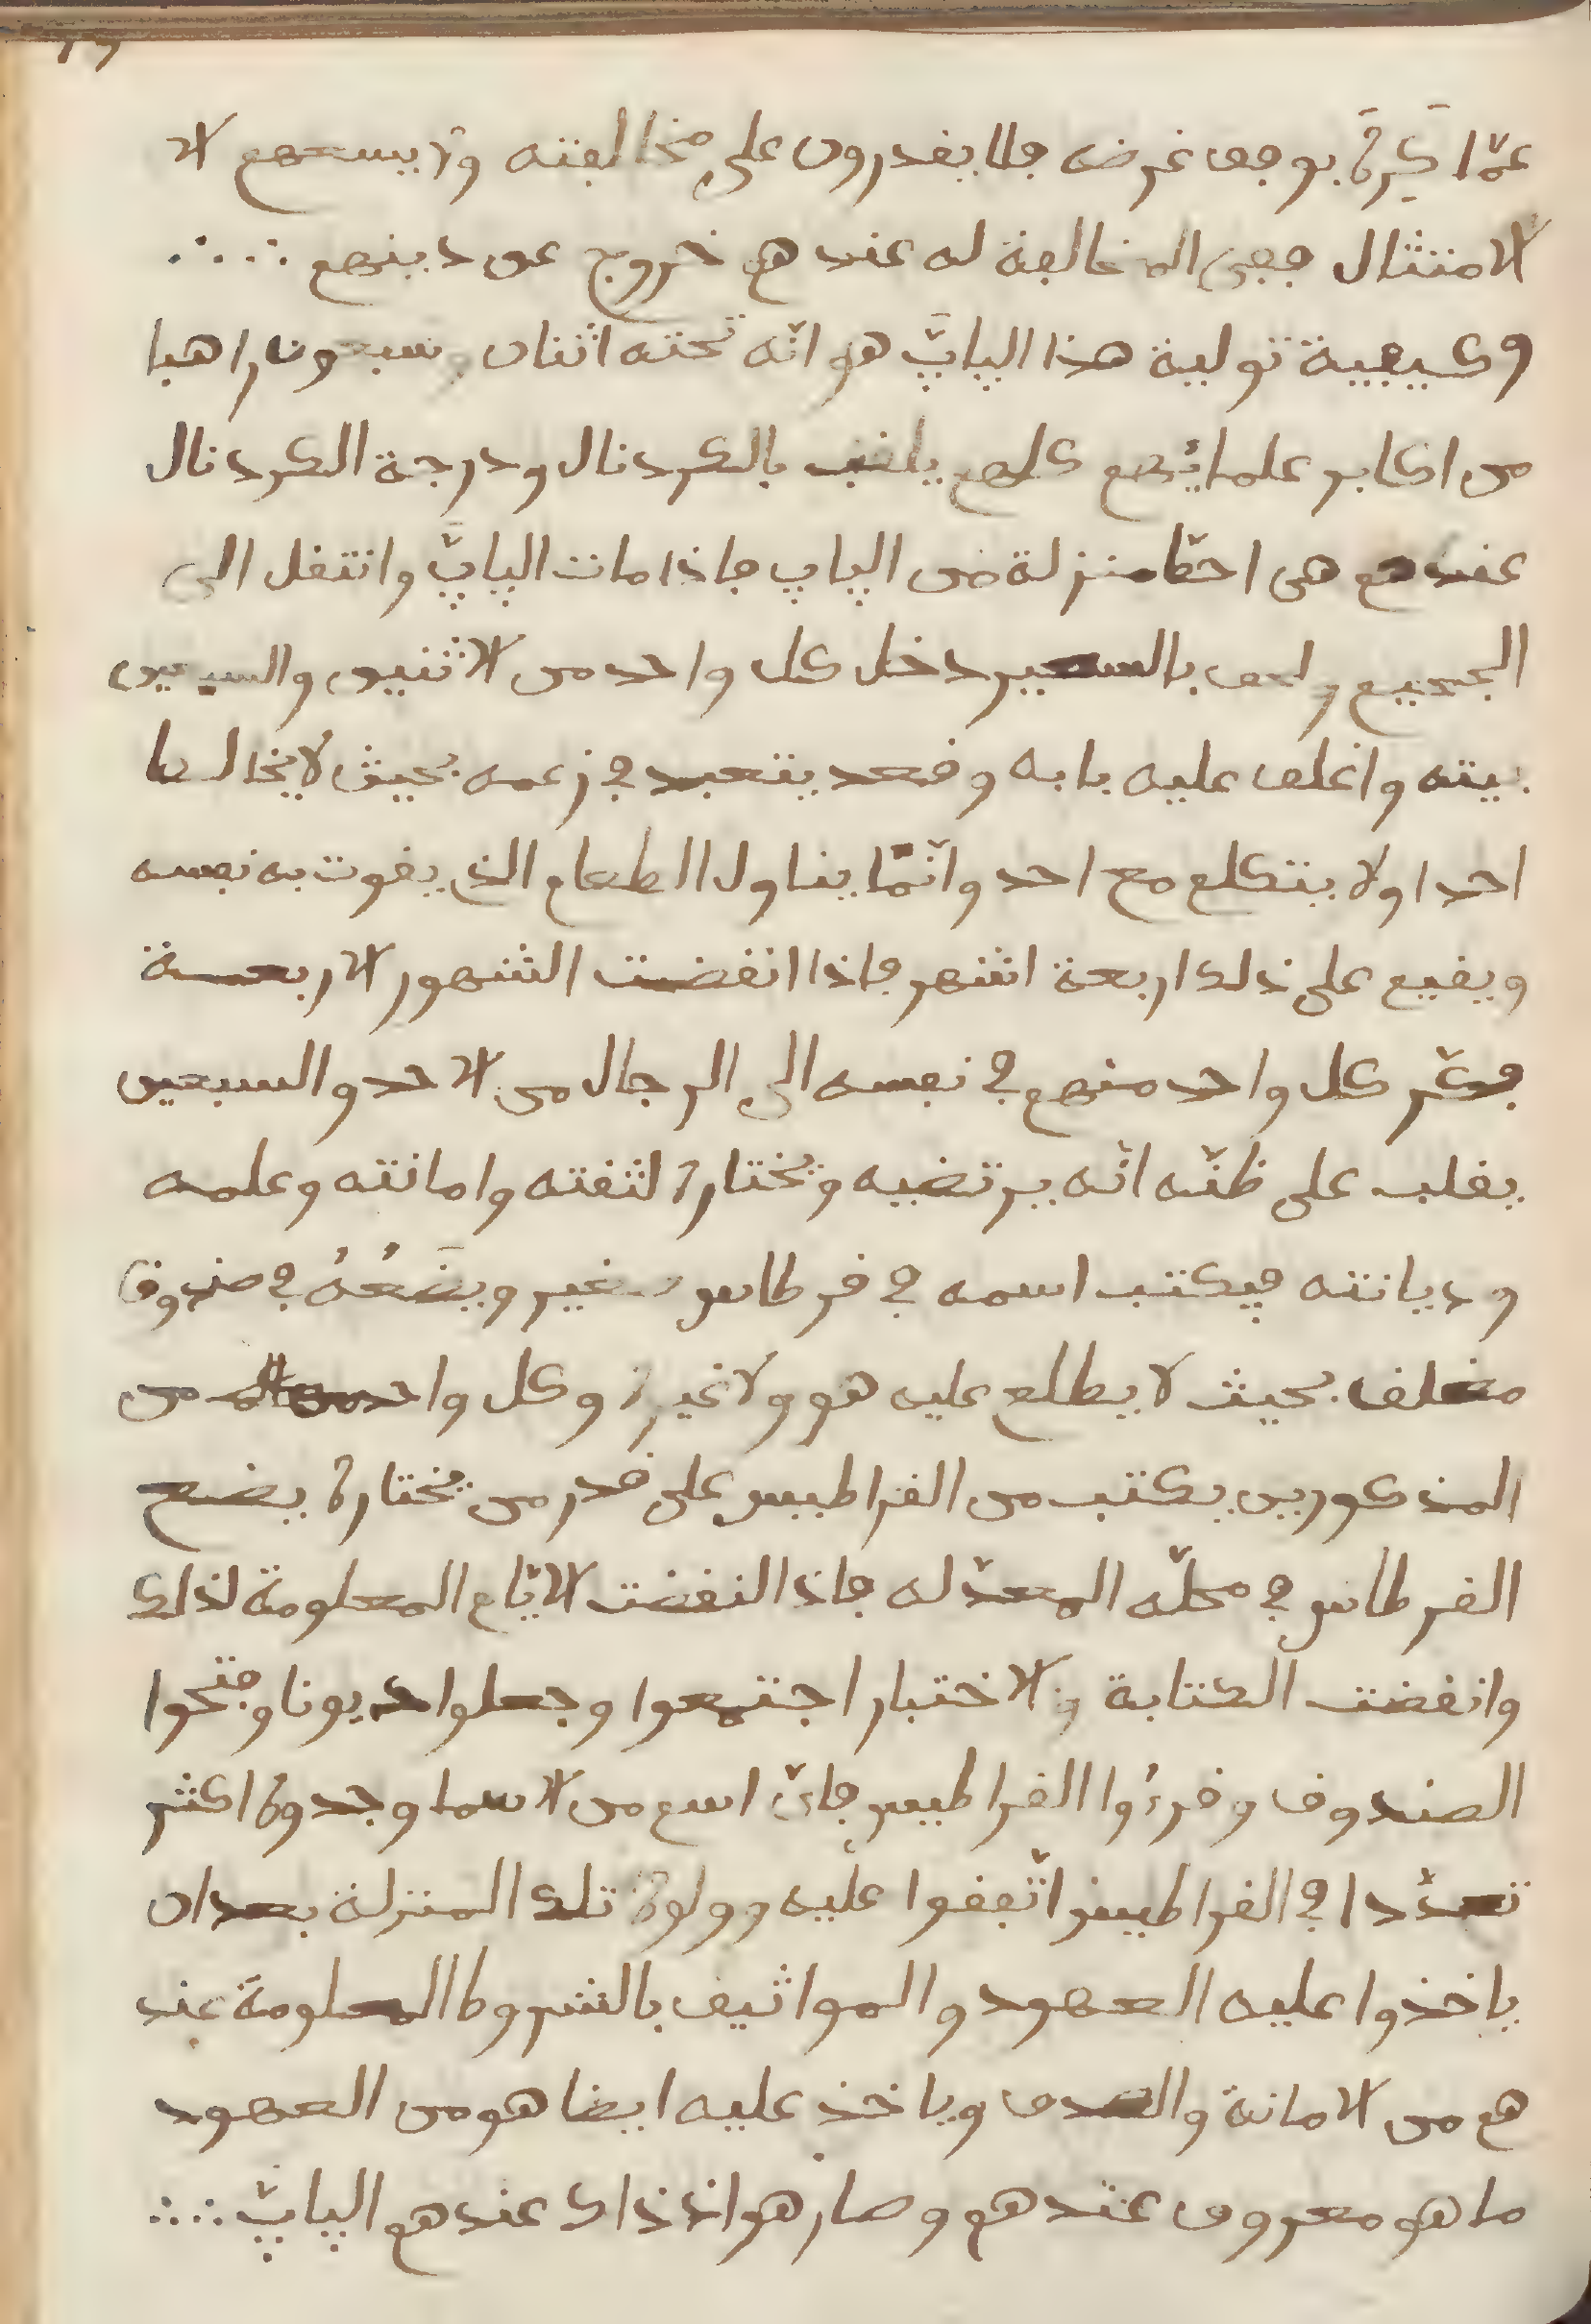 عمّا يكره يوجف غرضه فلا يقدرون على مخالفته ولا يسعهم الا
الامتثال ففى المخالفة له عندهم خروج عن دينهم
وكيفية تولية هذا الپاپّ هو انّه تحته اثنان وسبعون راهبا
من اكابر علمائهم كلهم يلقب بالكردنال ودرجة الكردنال
عندهم هى احطّ منزلة من الپاپ فاذا مات الپاپّ وانتقل الى
الجحيم ولحق بالسعير دخل كل واحد من الاثنين والسبعين
بيته واغلق عليه بابه وقعد يتعبد في زعمه بحيث لا يخالط
احدا ولا يتكلم مع احد وانّما يناول الطعام الذي يقوت به نفسه
ويقيم على ذلك اربعة اشهر فاذا انقضت الشهور الاربعة
فكّر كل واحد منهم في نفسه الى الرجال من الاحد والسبعين
يغلب على ظنّه انّه يرتضيه ويختاره لثقته وامانته وعلمه
وديانته فيكتب اسمه في قرطاس صغير ويضَعُهُ في صندوق
مغلق بحيث لا يطلع عليه هو ولا غيره وكل واحد من
المذكورين يكتب من القراطيس على قدر من يختاره يضع
القرطاس في محلّه المعدّ له فاذا انقضت الايّام المعلومة لذلك
وانقضت الكتابة والاختبار اجتمعوا وجعلوا ديونا وفتحوا
الصندوق وقرءُوا القراطيس فايّ اسم من الاسما وجدوه اكثر
تعدّدا في القراطيس اتّفقوا عليه وولوه تلك المنزلة بعد ان
ياخذوا عليه العهود والمواثيق بالشروط المعلومة عند
هم من الامانة والصدق وياخذ عليه ايضا هو من العهود
ما هو معروف عندهم وصار هو اذ ذاك عندهم الپاپّ